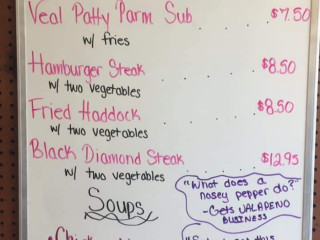 Veal Patty Parm Sub . . . $7.50
w/ fries
Hamburger Steak . . $8.50
w/ two vegetables
Fried Haddock . . $8.50
w/ two vegetables
Black Diamond Steak . . $12.95
w/ two vegetables
Soups
"What does a
nosey pepper do?"
-Gets JALAPENO
BUSINESS